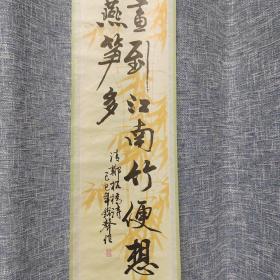 画到江南竹便想
燕笋多
清郑板桥诗
己巳年